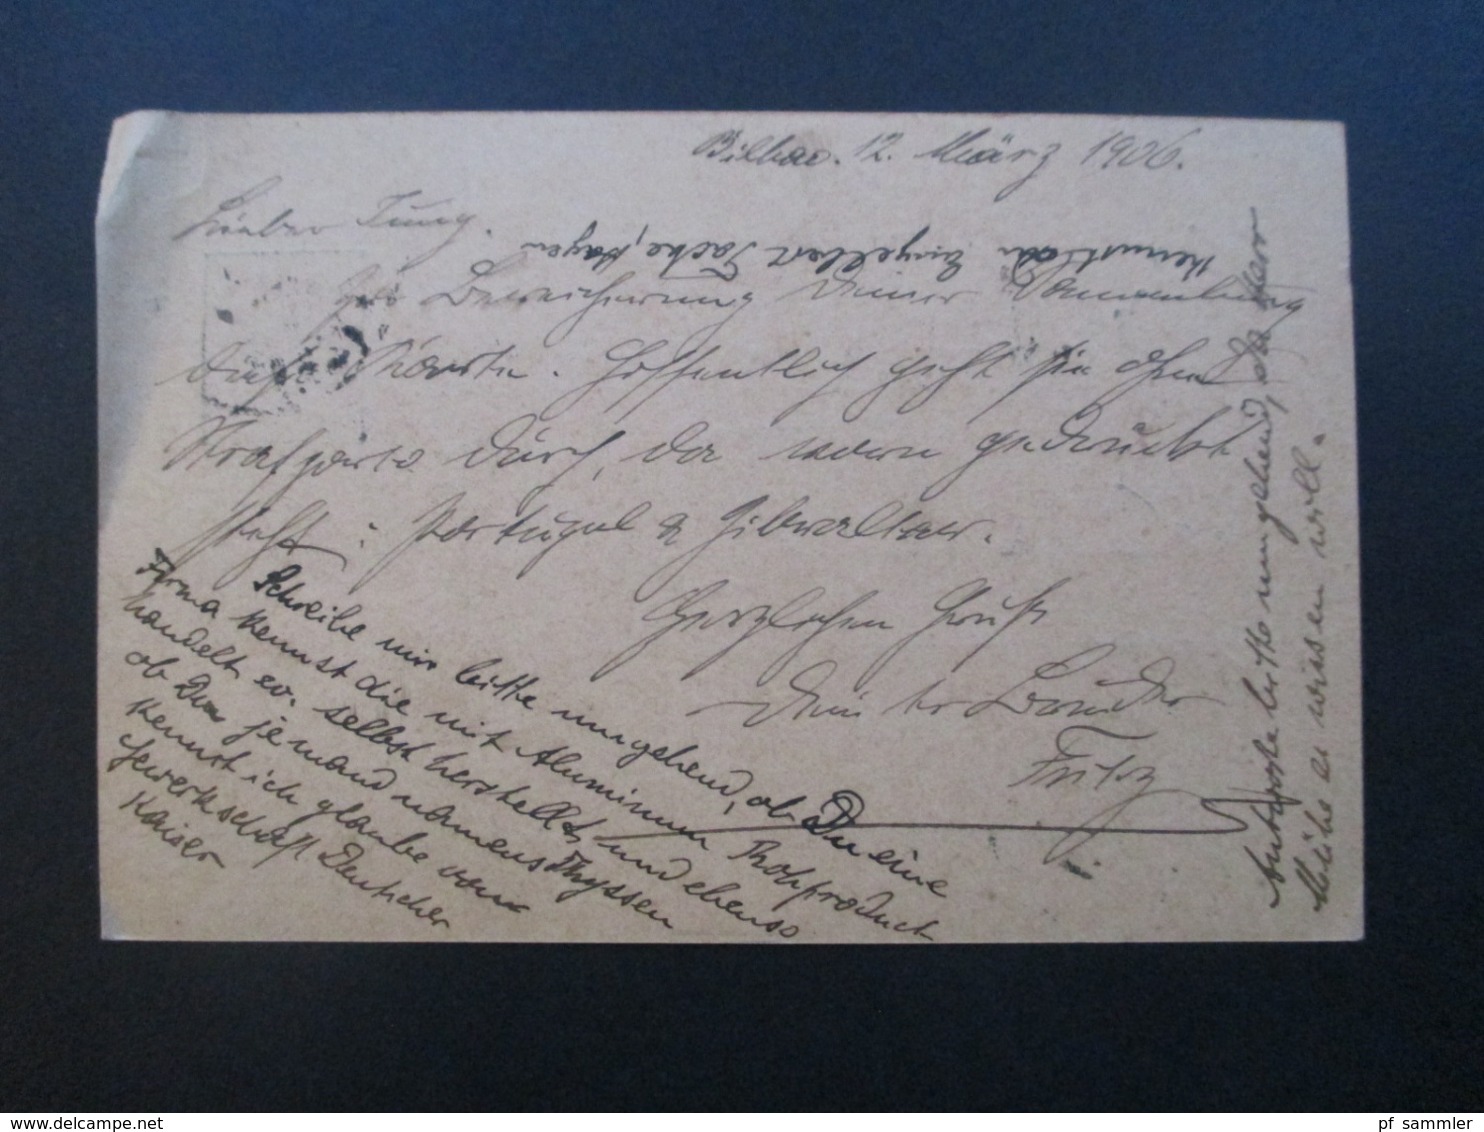 Bilbao. 12. März 1906.
Lieber Jung.
Zur Bereicherung Deiner Sammlung
diese Karte. Hoffentlich geht sie ohne
Strafporto durch, da vorn gedruckt
steht: Portugal & Gibraltar.
Herzlichen Gruß
Dein tr Bruder
Fritz
Kennst du Engelbert Tacke, Hagen
Schreibe mir bitte umgehend, ob Du eine
Firma kennst die mit Aluminum Rohproduct
handelt ev. selbst herstellt und ebenso
ob Du jemand namens Thyssen
kennst ich glaube von
Gewerkschaft Deutscher
Kaiser
Antworte bitte umgehend, da Herr
zu wissen will.
delcampe.net
pf_sammler